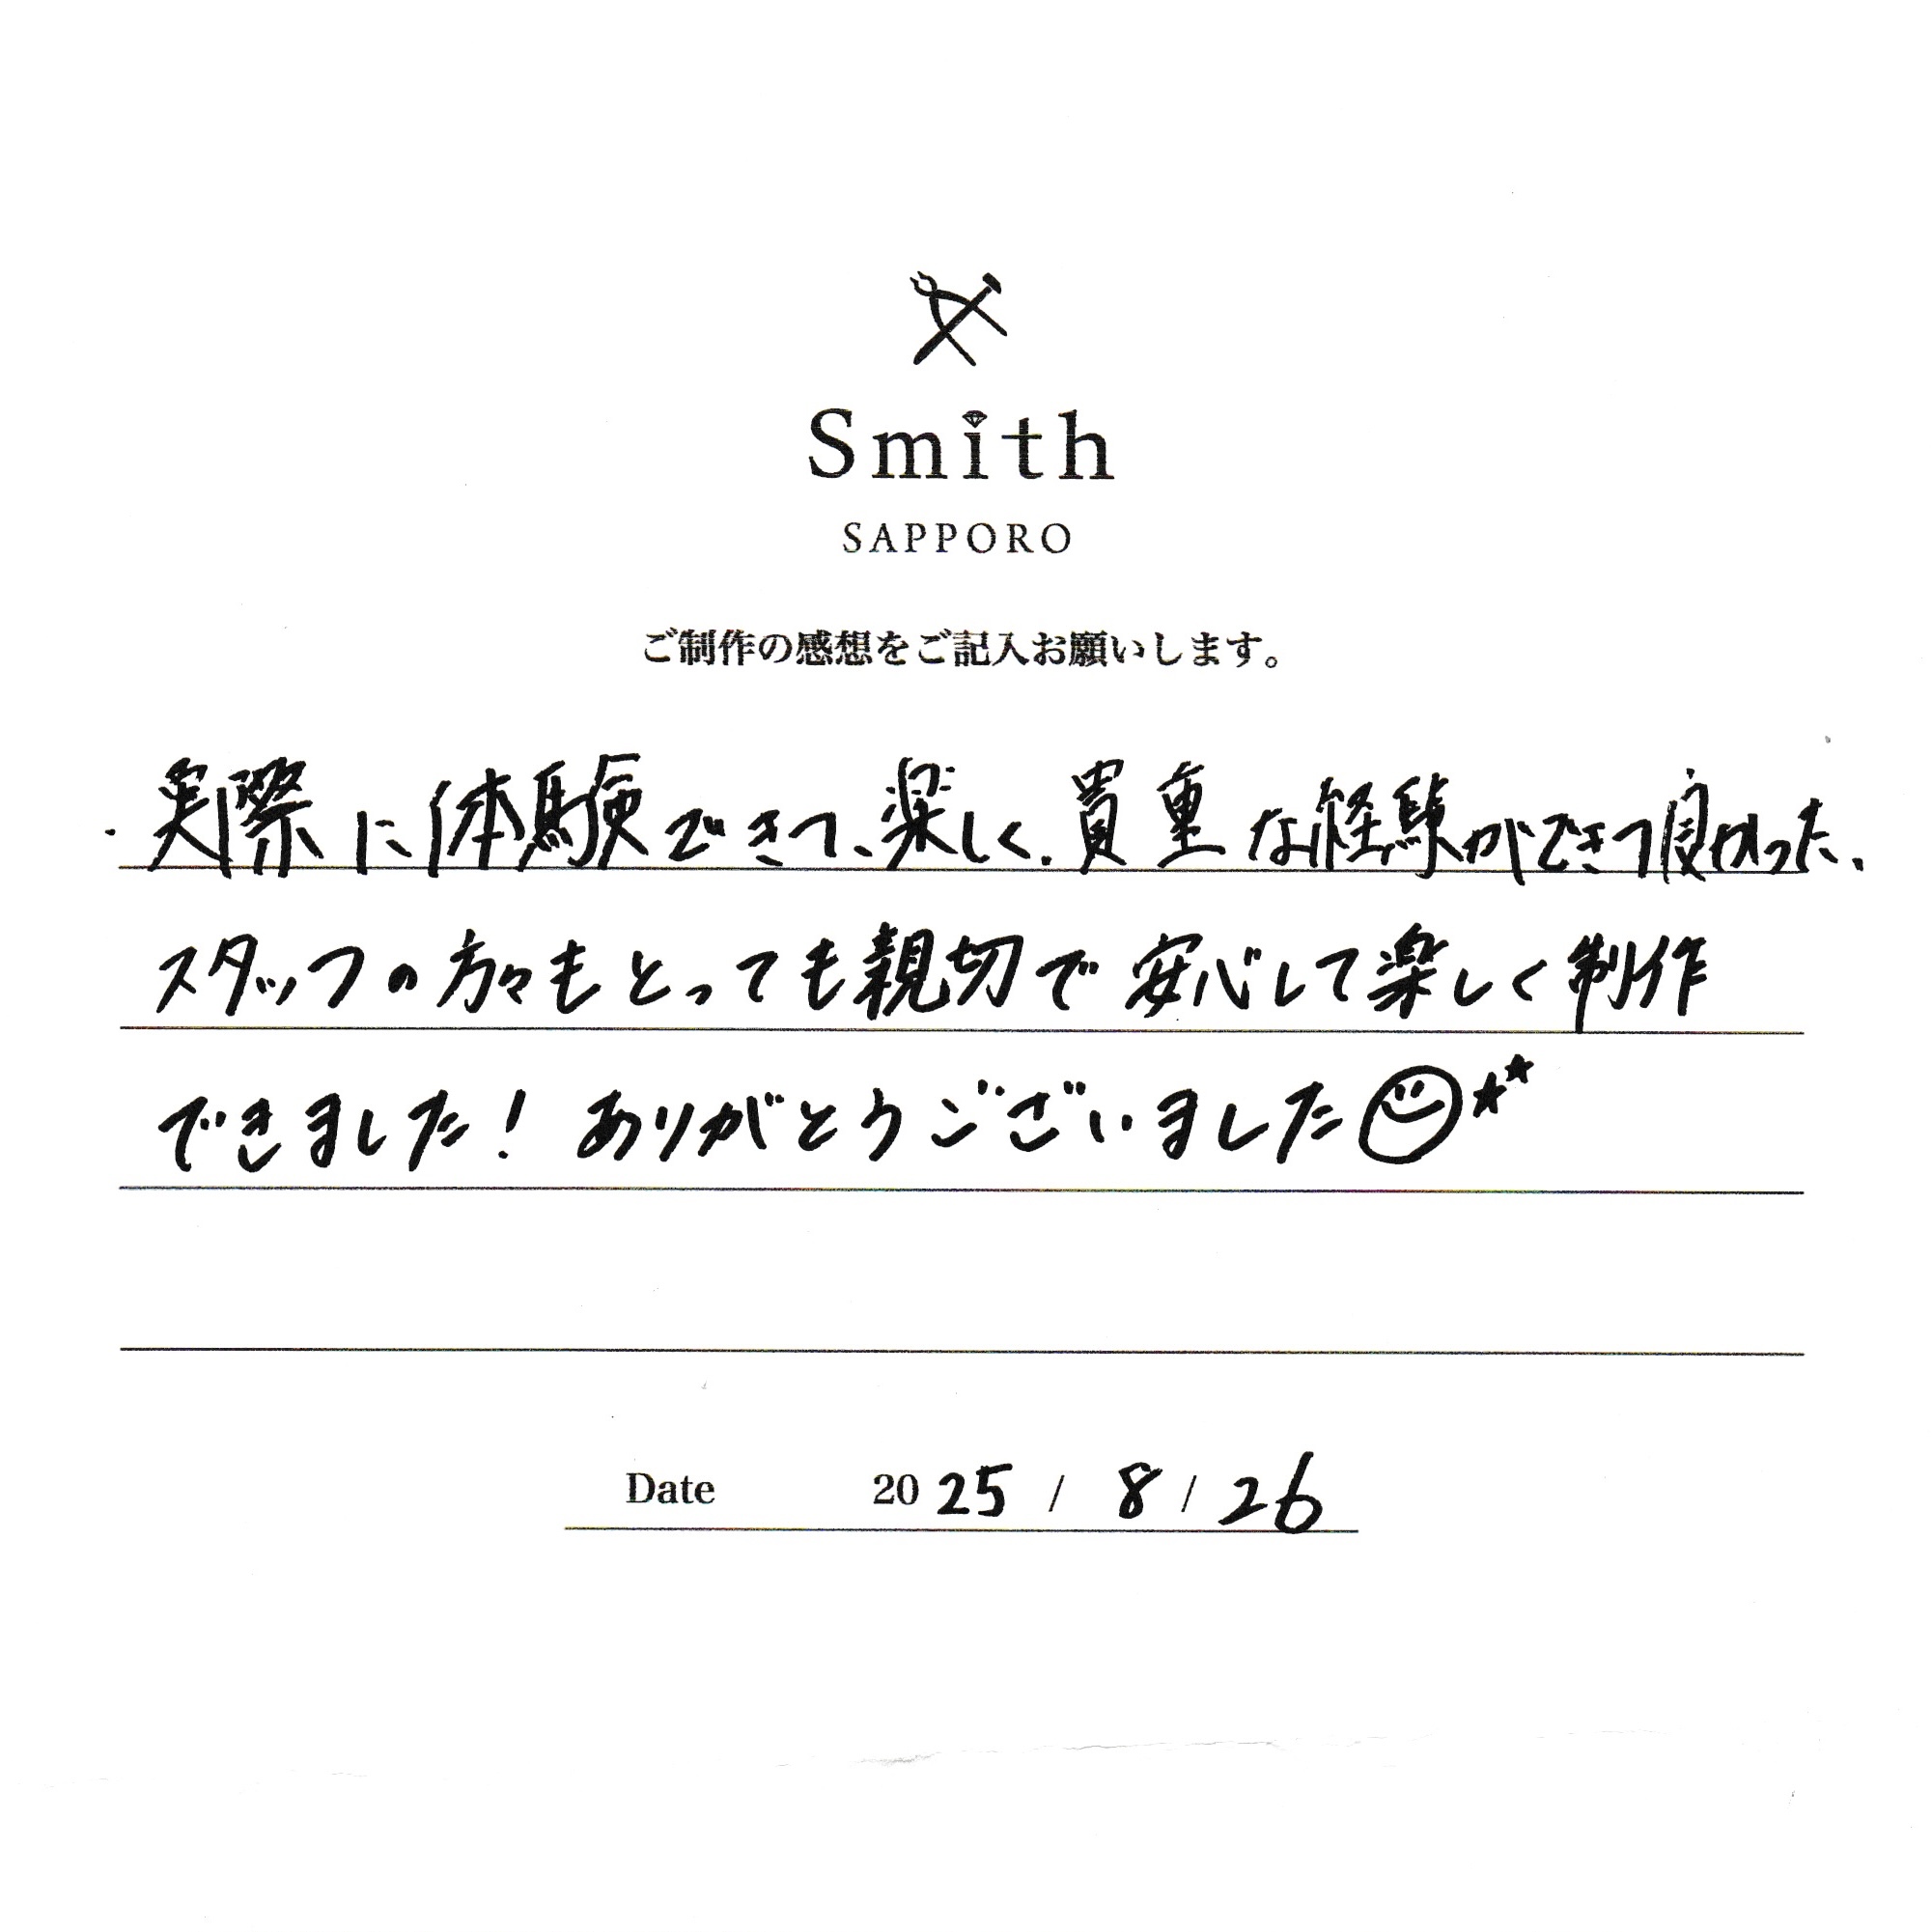 Smith
SAPPORO
ご制作の感想をご記入お願いします。
・実際に体験できて、楽しく、貴重な経験ができて良かった、
スタッフの方々もとっても親切で安心して楽しく制作
できました！ありがとうございました☺★★
Date 2025 / 8 / 26